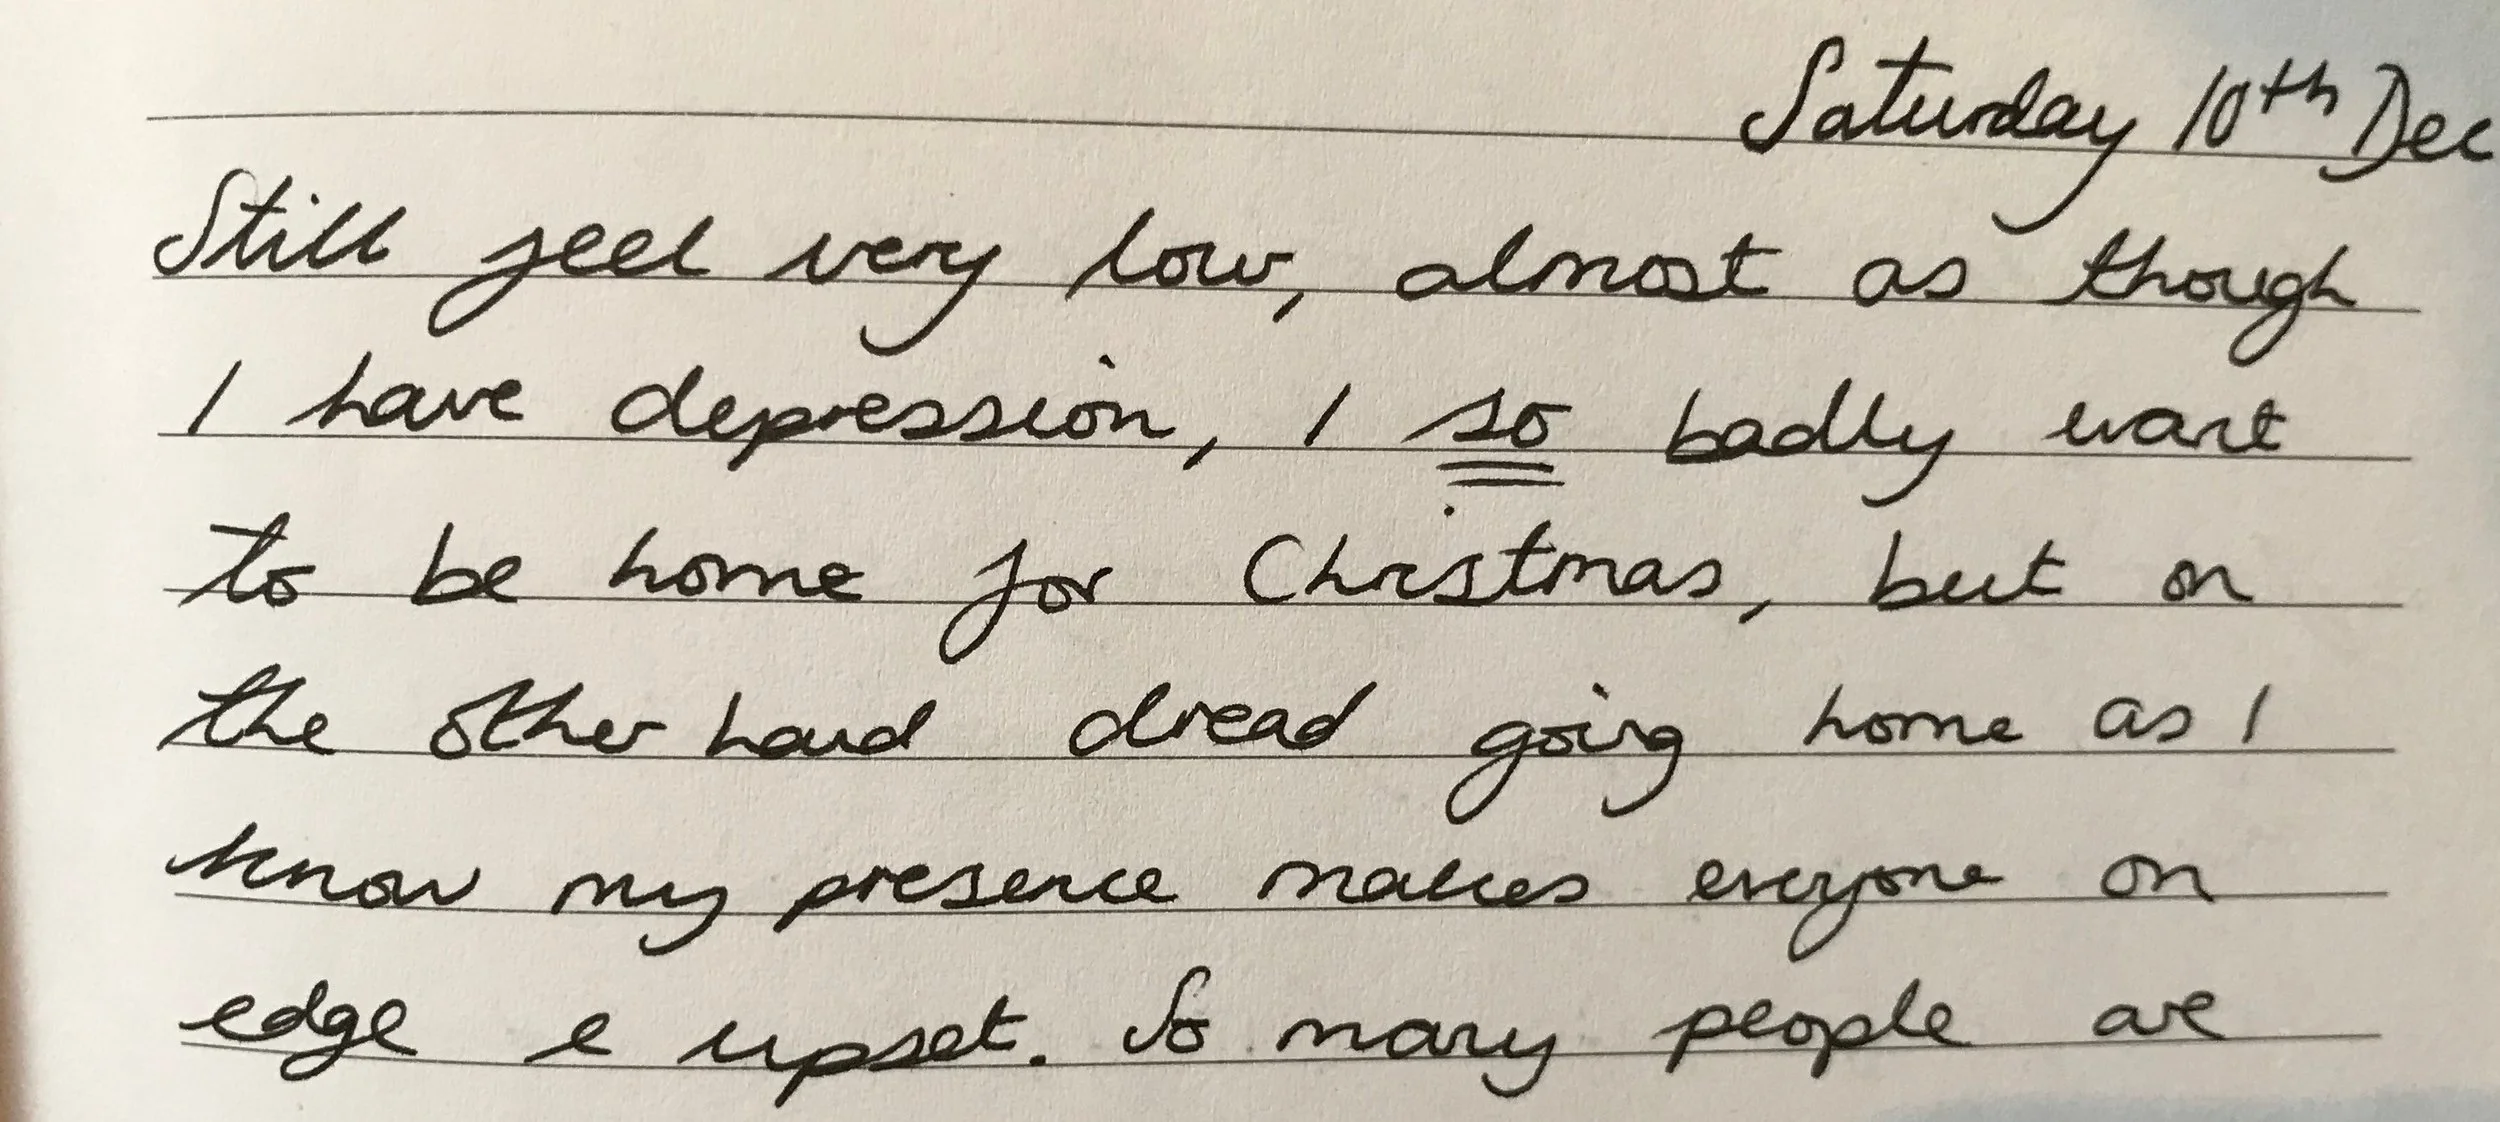 Saturday 10th Dec
Still feel very low, almost as though
I have depression, I so badly want
to be home for Christmas, but on
the other hand dread going home as I
know my presence makes everyone on
edge & upset. So many people are